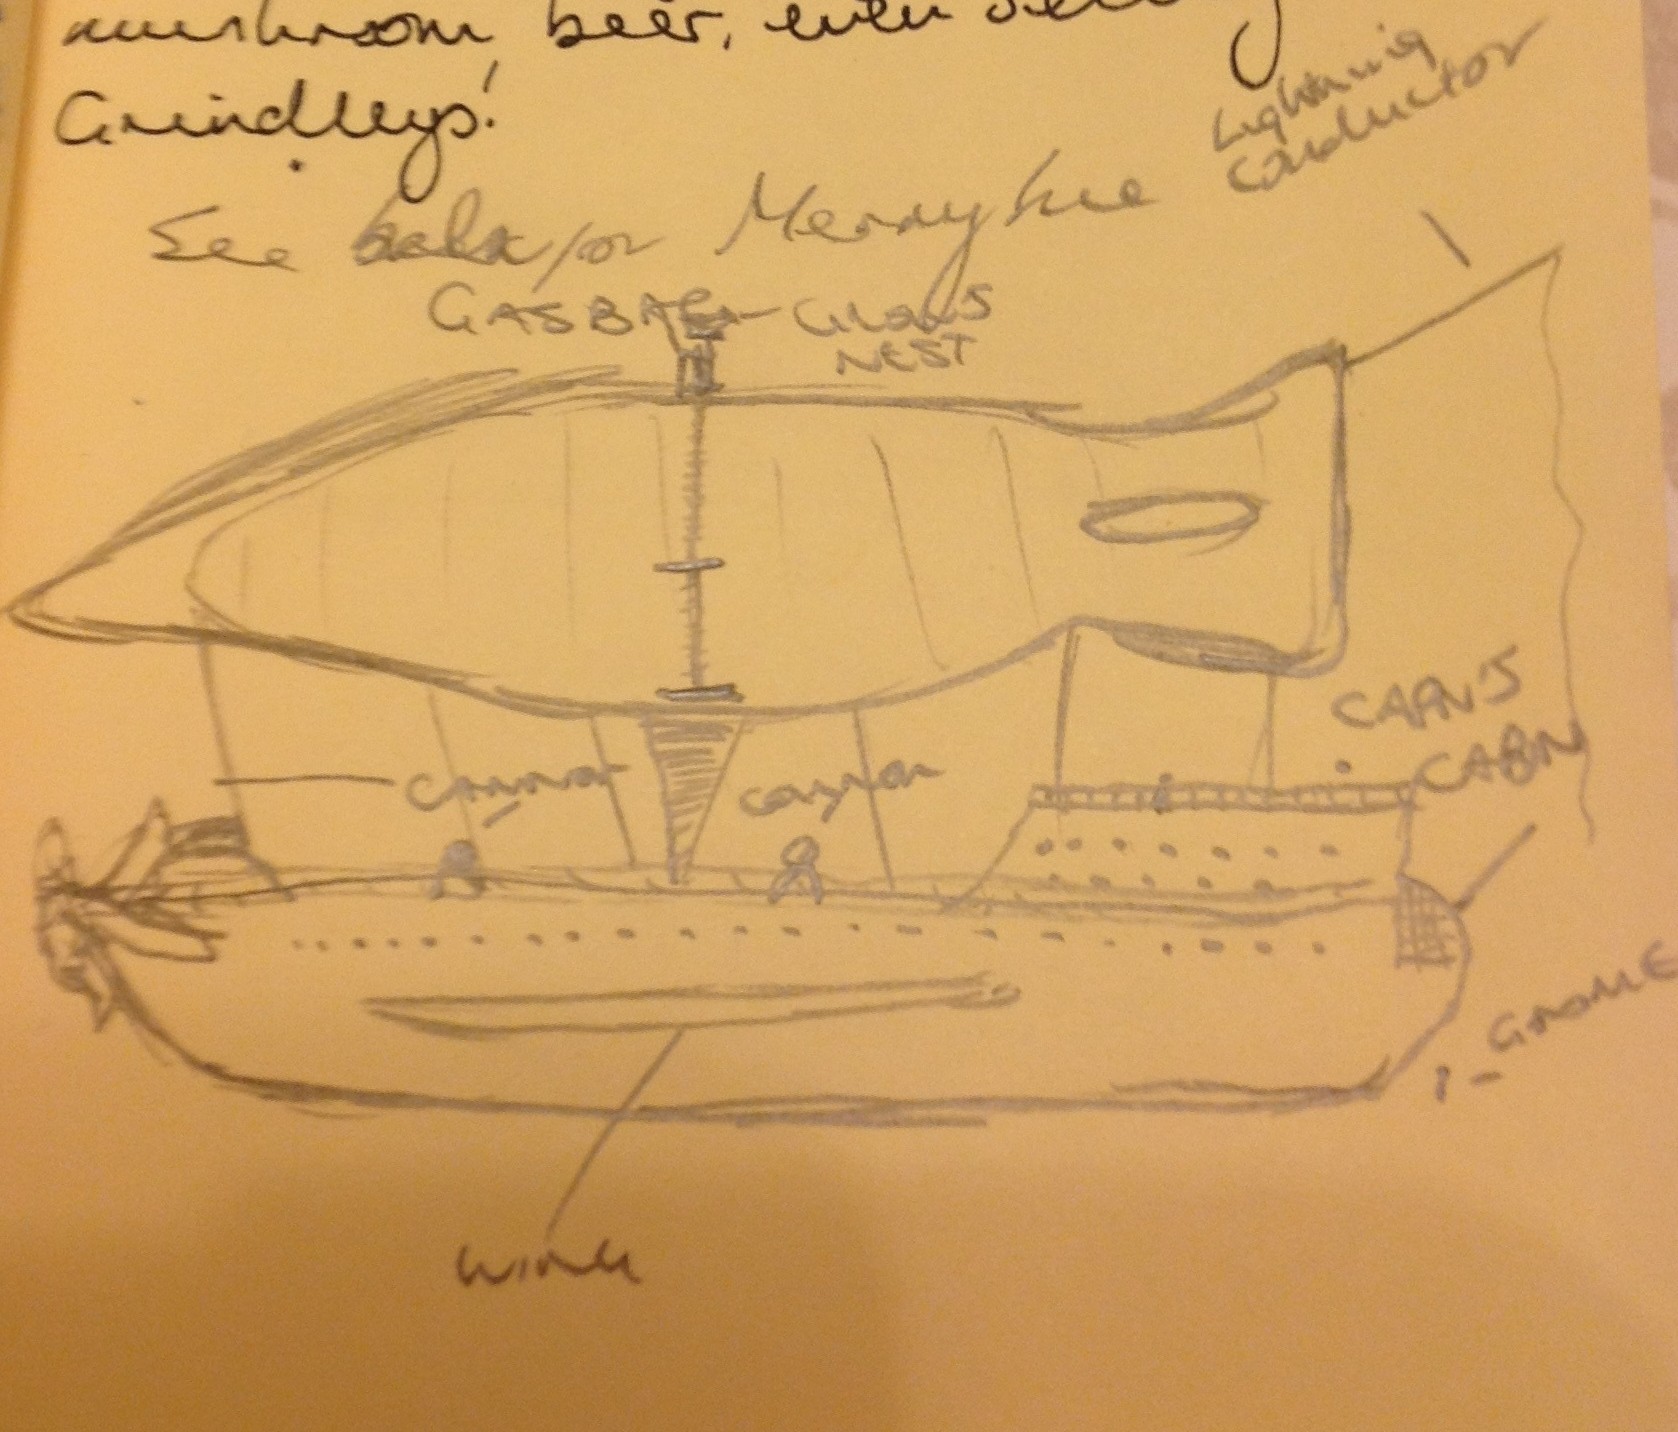 mushroom beer, even
Grindleys!
Lightning
conductor
See for Merryhue
GASBAG - CROWS
NEST
CAPN'S
CABIN
cannon cannon
GNOME
WING